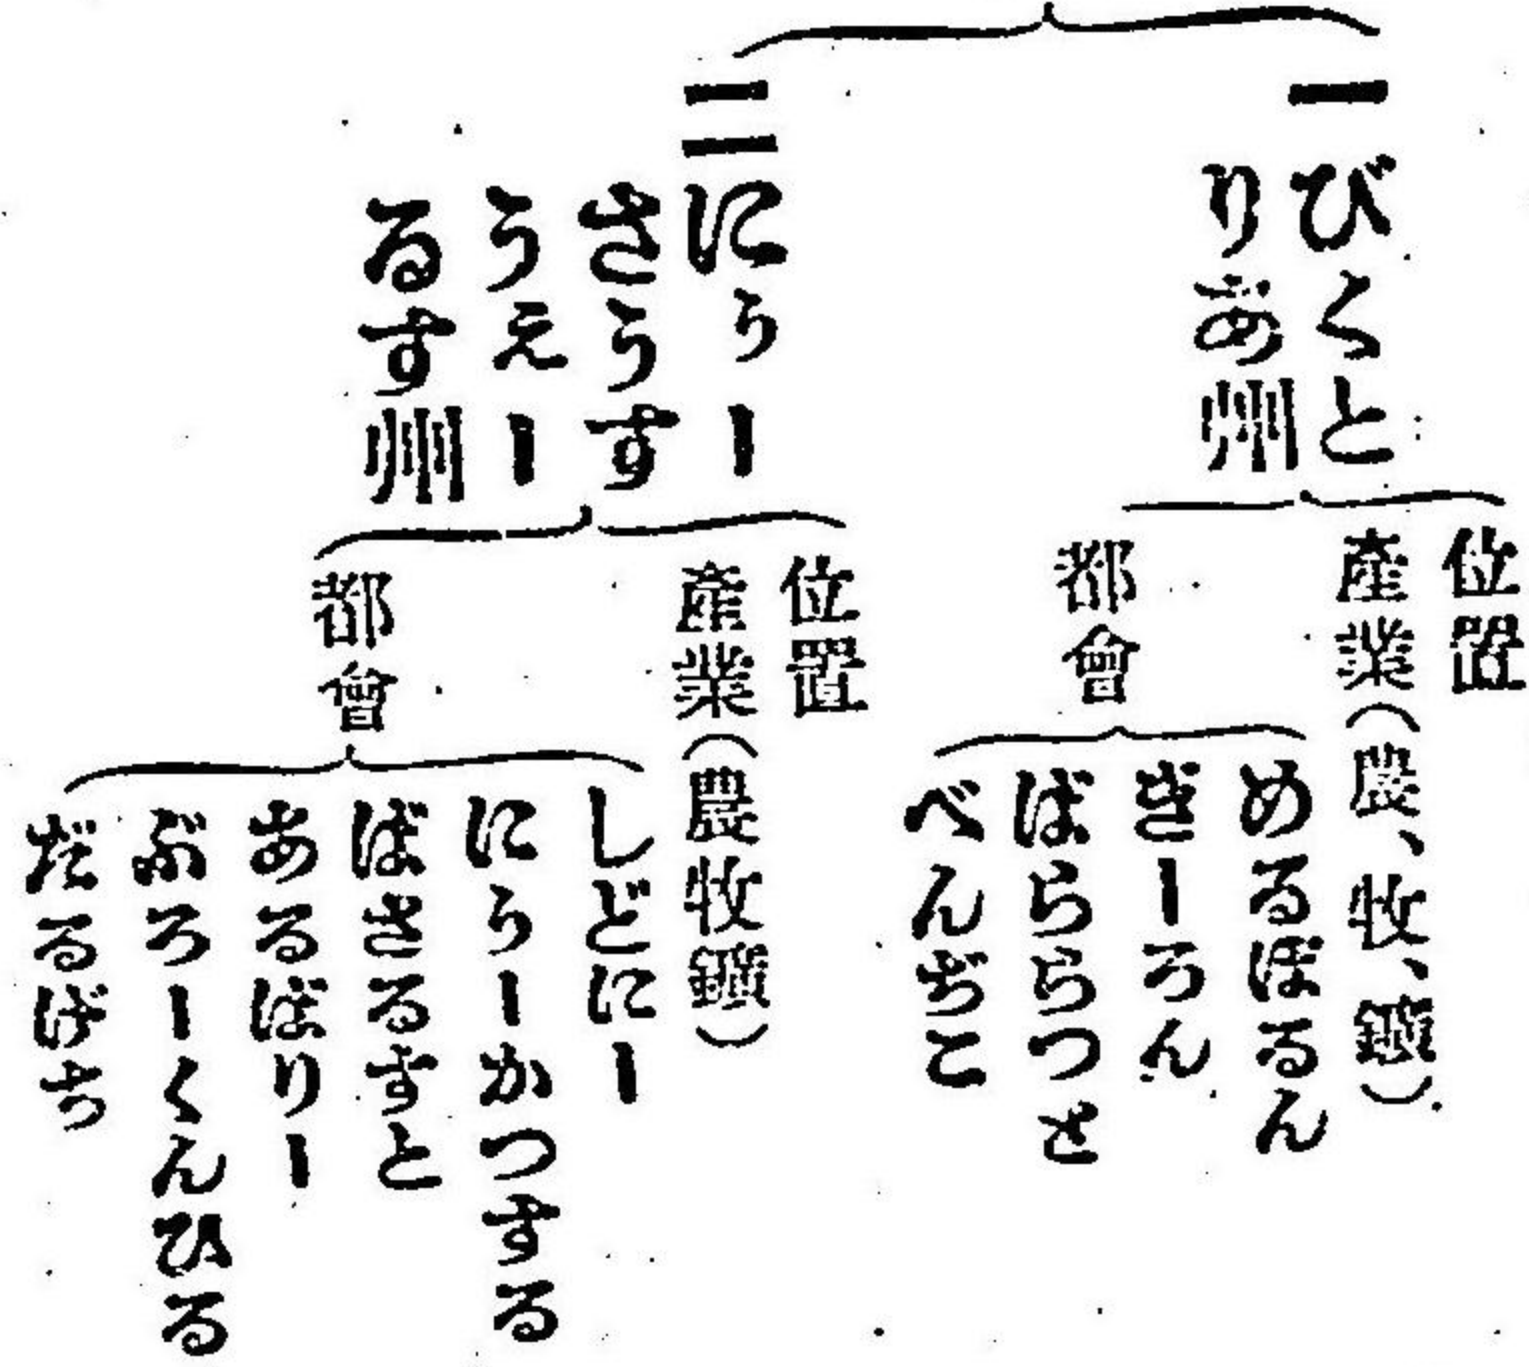 一びくと
りあ州
位置
產業(農、牧、鑛)
都會
めるぼるん
ぎーろん
ばららつと
べんぢこ
二にうー
さうす
うえー
るす州
位置
產業(農牧鑛)
都會
しどにー
にうーかつする
ばさるすと
あるばりー
ぶろーくんひる
だるげち